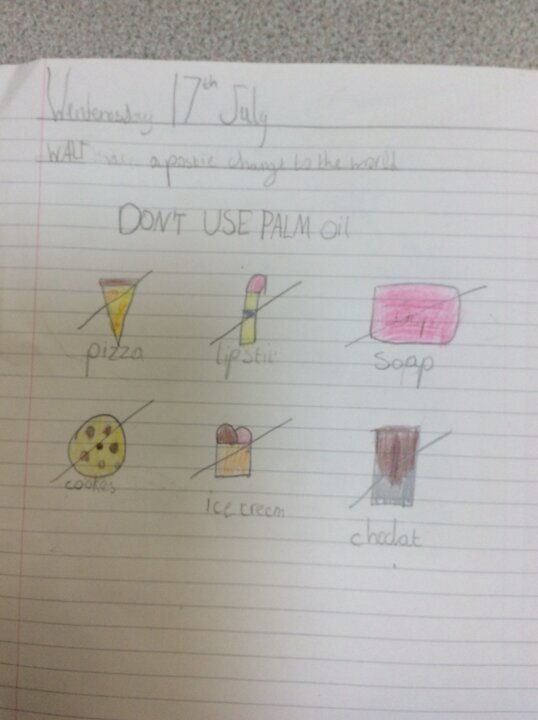 Wendenesday 17th July
WALT make a postie change to the world
DON'T USE PALM oil
pizza
lipstic
soap
cookes
ice cream
choclat